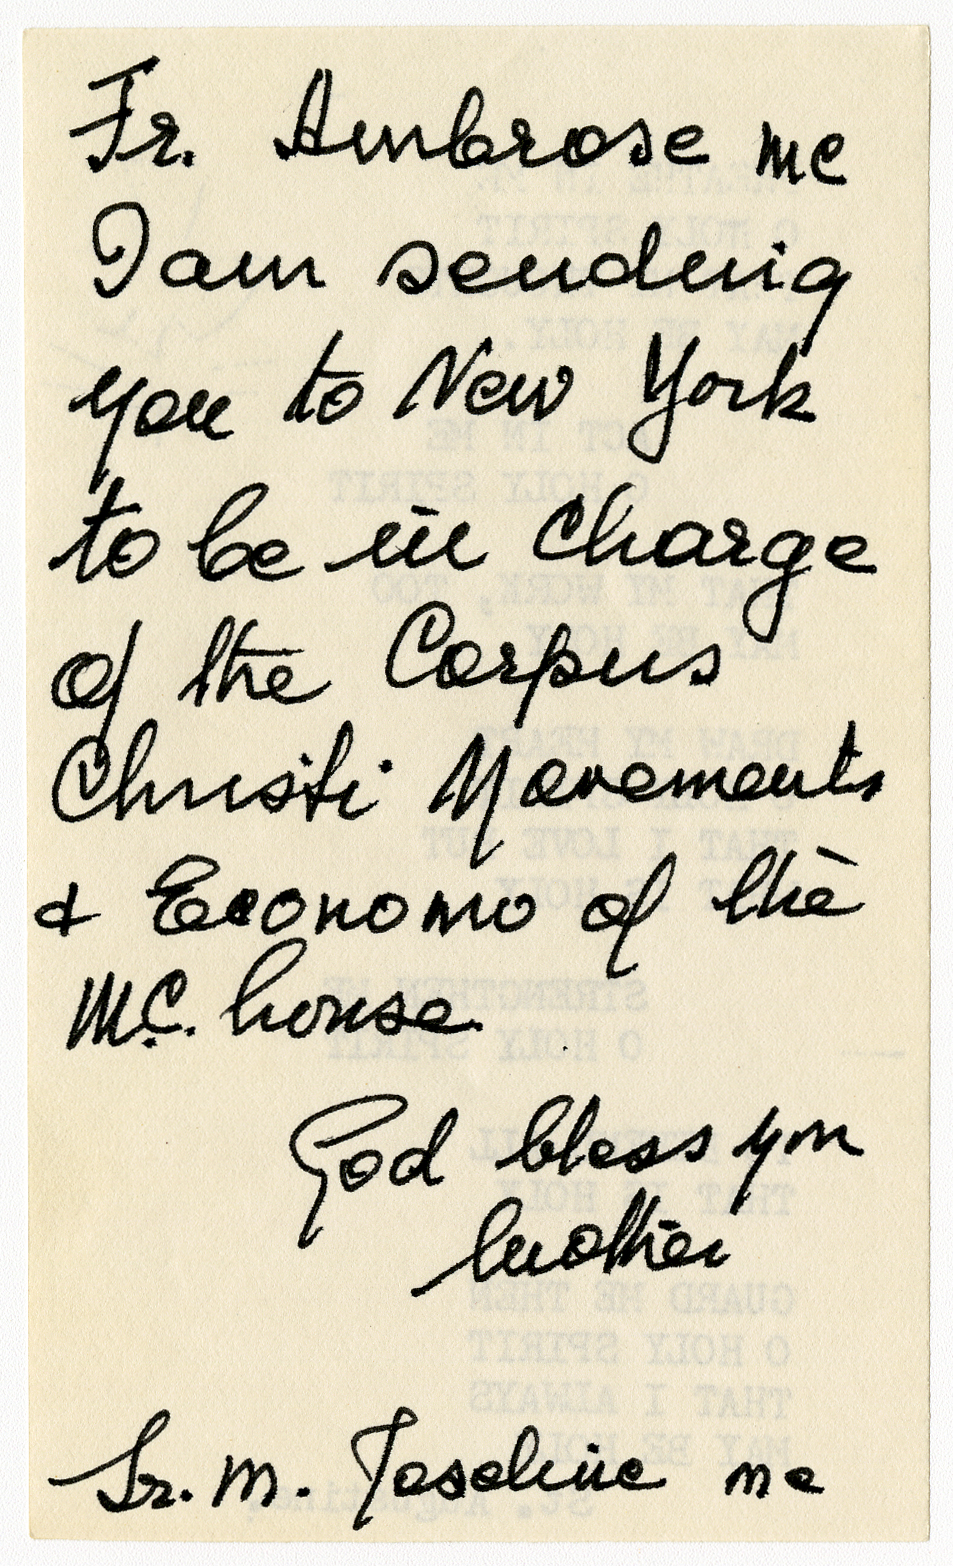 Fr. Ambrose MC
I am sending
you to New York
to be in charge
of the Corpus
Christi Movements
& Economo of the
M.C. house.
God bless you
Mother
Sr. M. Joseline MC